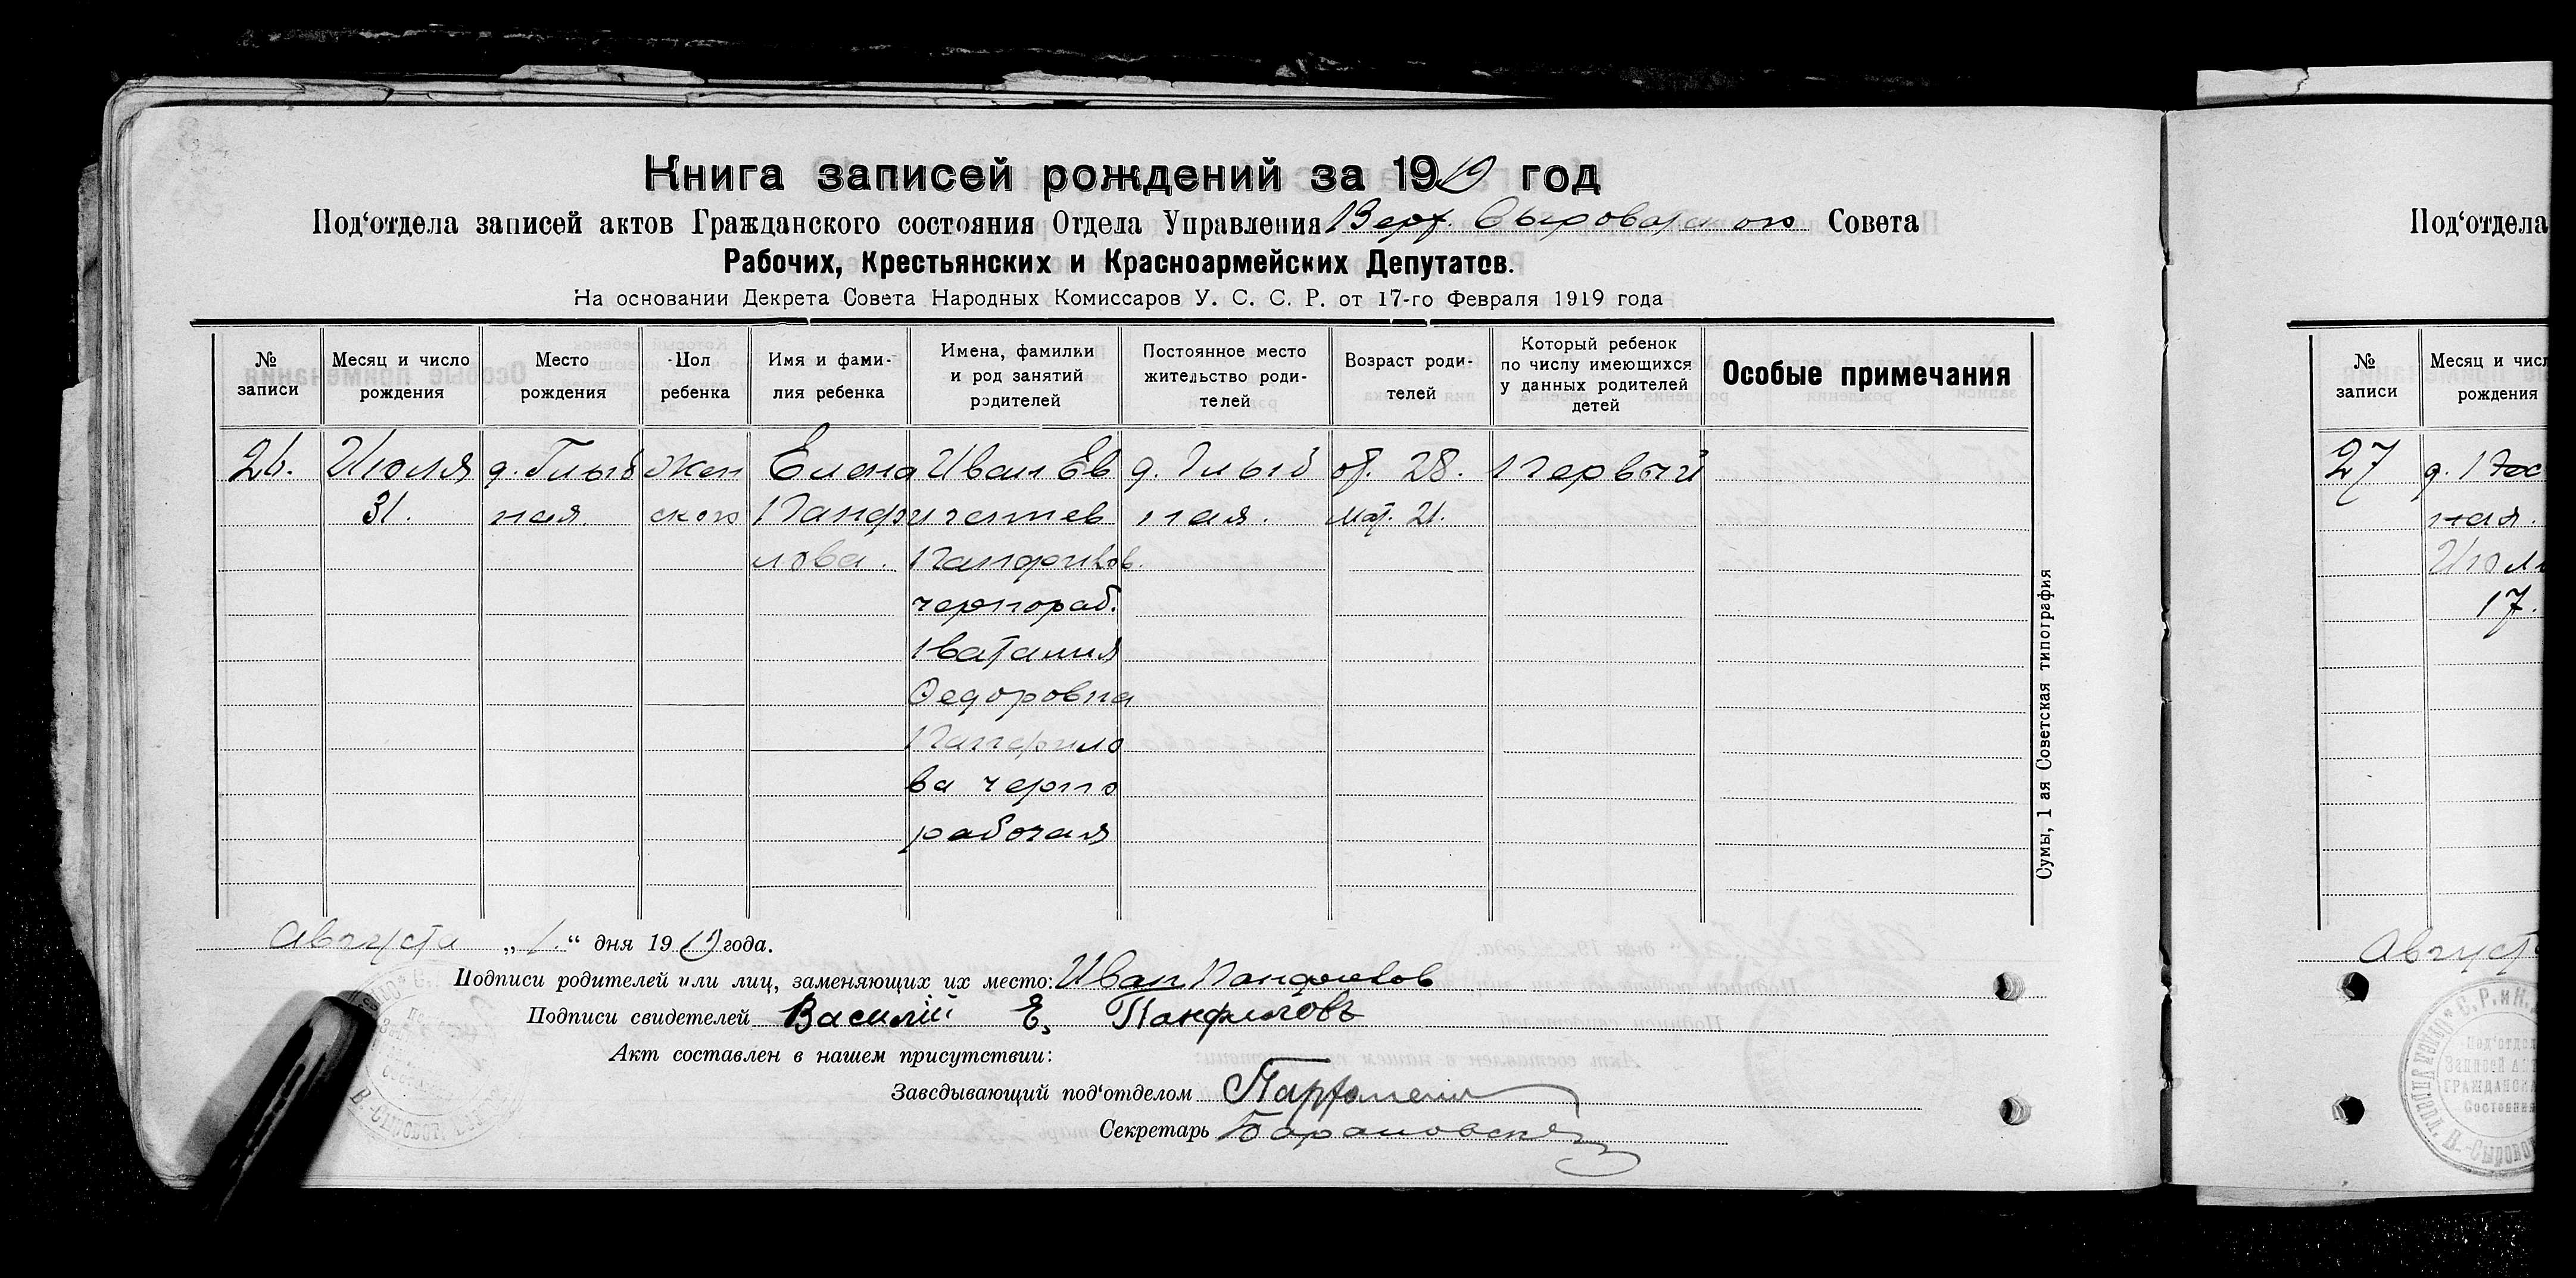 Книга записей рождений за 1919 год
Под‘отдела записей актов Гражданского состояния Отдела Управления Верх. Сыроватского Совета
Рабочих, Крестьянских и Красноармейских Депутатов.
На основании Декрета Совета Народных Комиссаров У. С. С. Р. от 17-го Февраля 1919 года
№ записи
Месяц и число рождения
Место рождения
Пол ребенка
Имя и фамилия ребенка
Имена, фамилии и род занятий родителей
Постоянное место жительство родителей
Возраст родителей
Который ребенок по числу имеющихся у данных родителей детей
Особые примечания
26. Июля д. Глыб Жен Елена Иван Ев д. Глыб от. 28. Первый
31. ная. ского Панфи гениев ная. мат. 21.
лова. Панфилов
чернораб.
Наталия
Федоровна
Панфило
ва черно
рабочая
Августа „1.“ дня 1919 года.
Подписи родителей или лиц, заменяющих их место: Иван Панфилов
Подписи свидетелей Василий Е. Панфиловъ
Акт составлен в нашем присутствии:
Заведывающий под‘отделом
Секретарь Барановский
Сумы, 1 ая Советская типография
Под‘отдела
№ записи
Месяц и числ
рождения
27
ная.
Июл
17.
Август